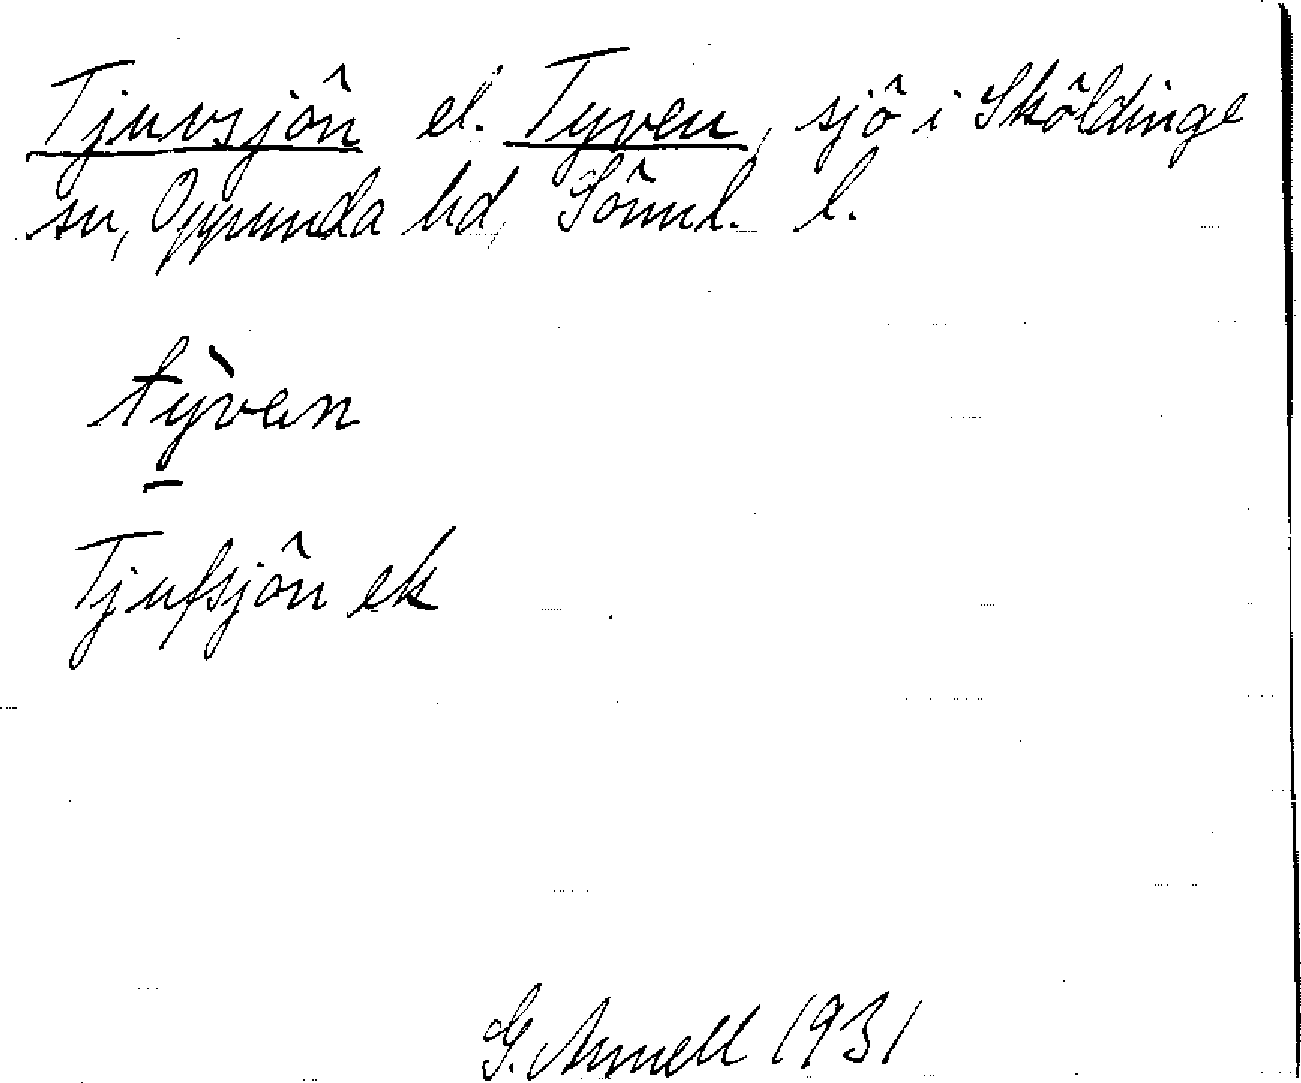 Tjuvsjön el. Tyven, sjö i Sköldinge
sn, Oppunda hd, Söml. l.
tỳ̱ven
Tjufsjön ek
G. Arnell 1931